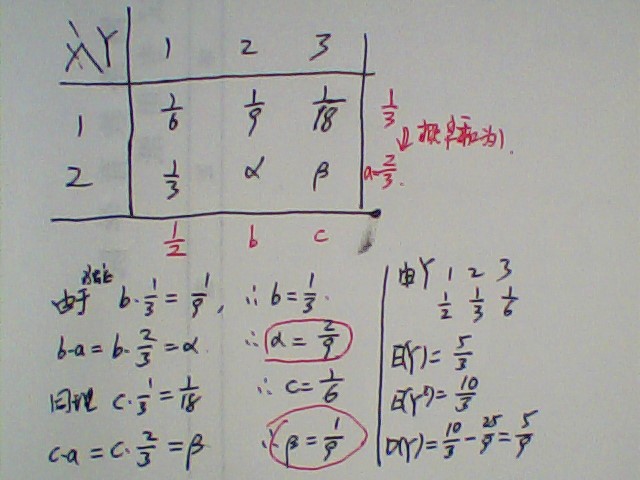 X Y 1 2 3
1 1/6 1/9 1/18 1/3
↓概率和为1.
2 1/3 α β a=2/3.
1/2 b c
由于 b·1/3=1/9, ∴b=1/3.
b·a=b·2/3=α. ∴α=2/9
同理 c·1/3=1/18 ∴c=1/6
c·a=c·2/3=β ∴β=1/9
由Y 1 2 3
1/2 1/3 1/6
E(Y)=5/3
E(Y²)=10/3
D(Y)=10/3-25/9=5/9